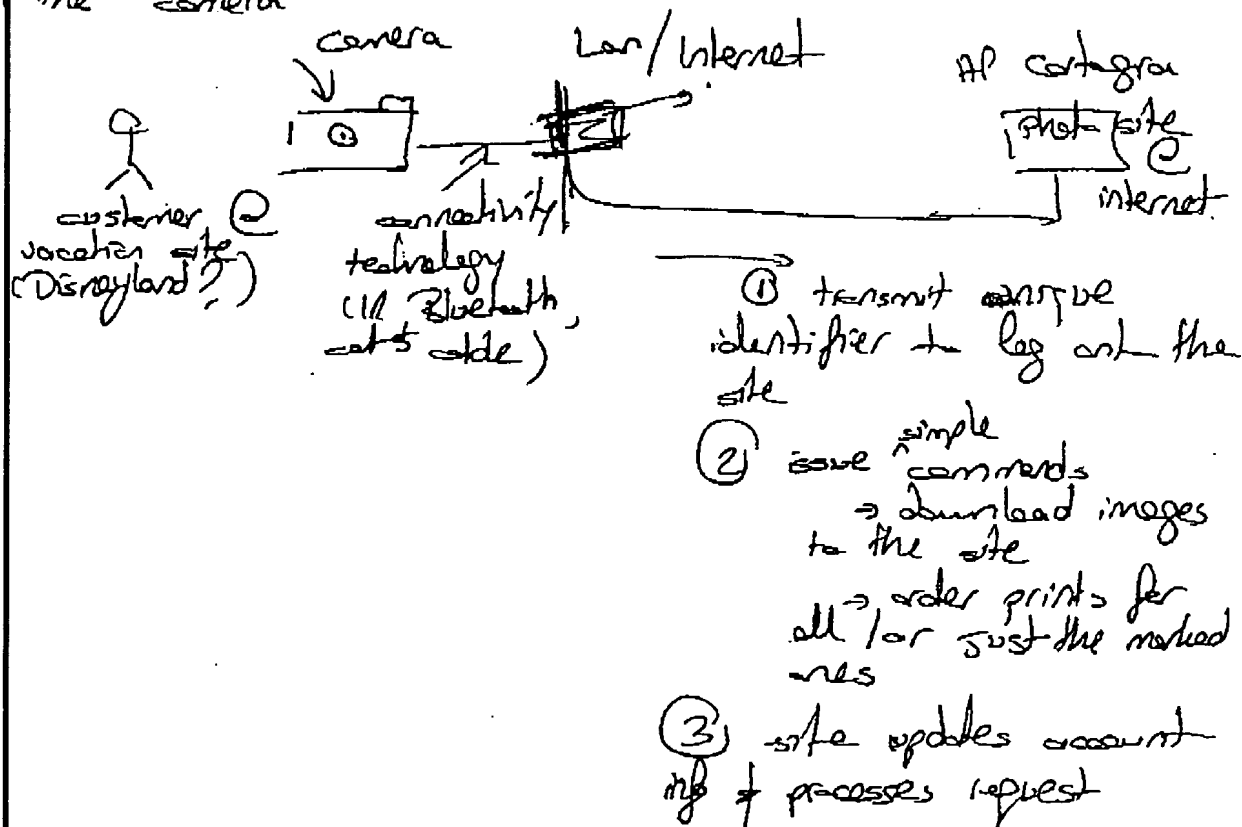 the camera
camera
Lan/Internet
HP Cartogra
photo site
@
internet.
customer @
vacation site
(Disneyland?)
connectivity
technology
(IR Bluetooth,
cat5 cable)
① transmit unique
identifier to log onto the
site
② issue simple
commands
→ download images
to the site
→ order prints for
all/or just the marked
ones
③ site updates account
info & processes request